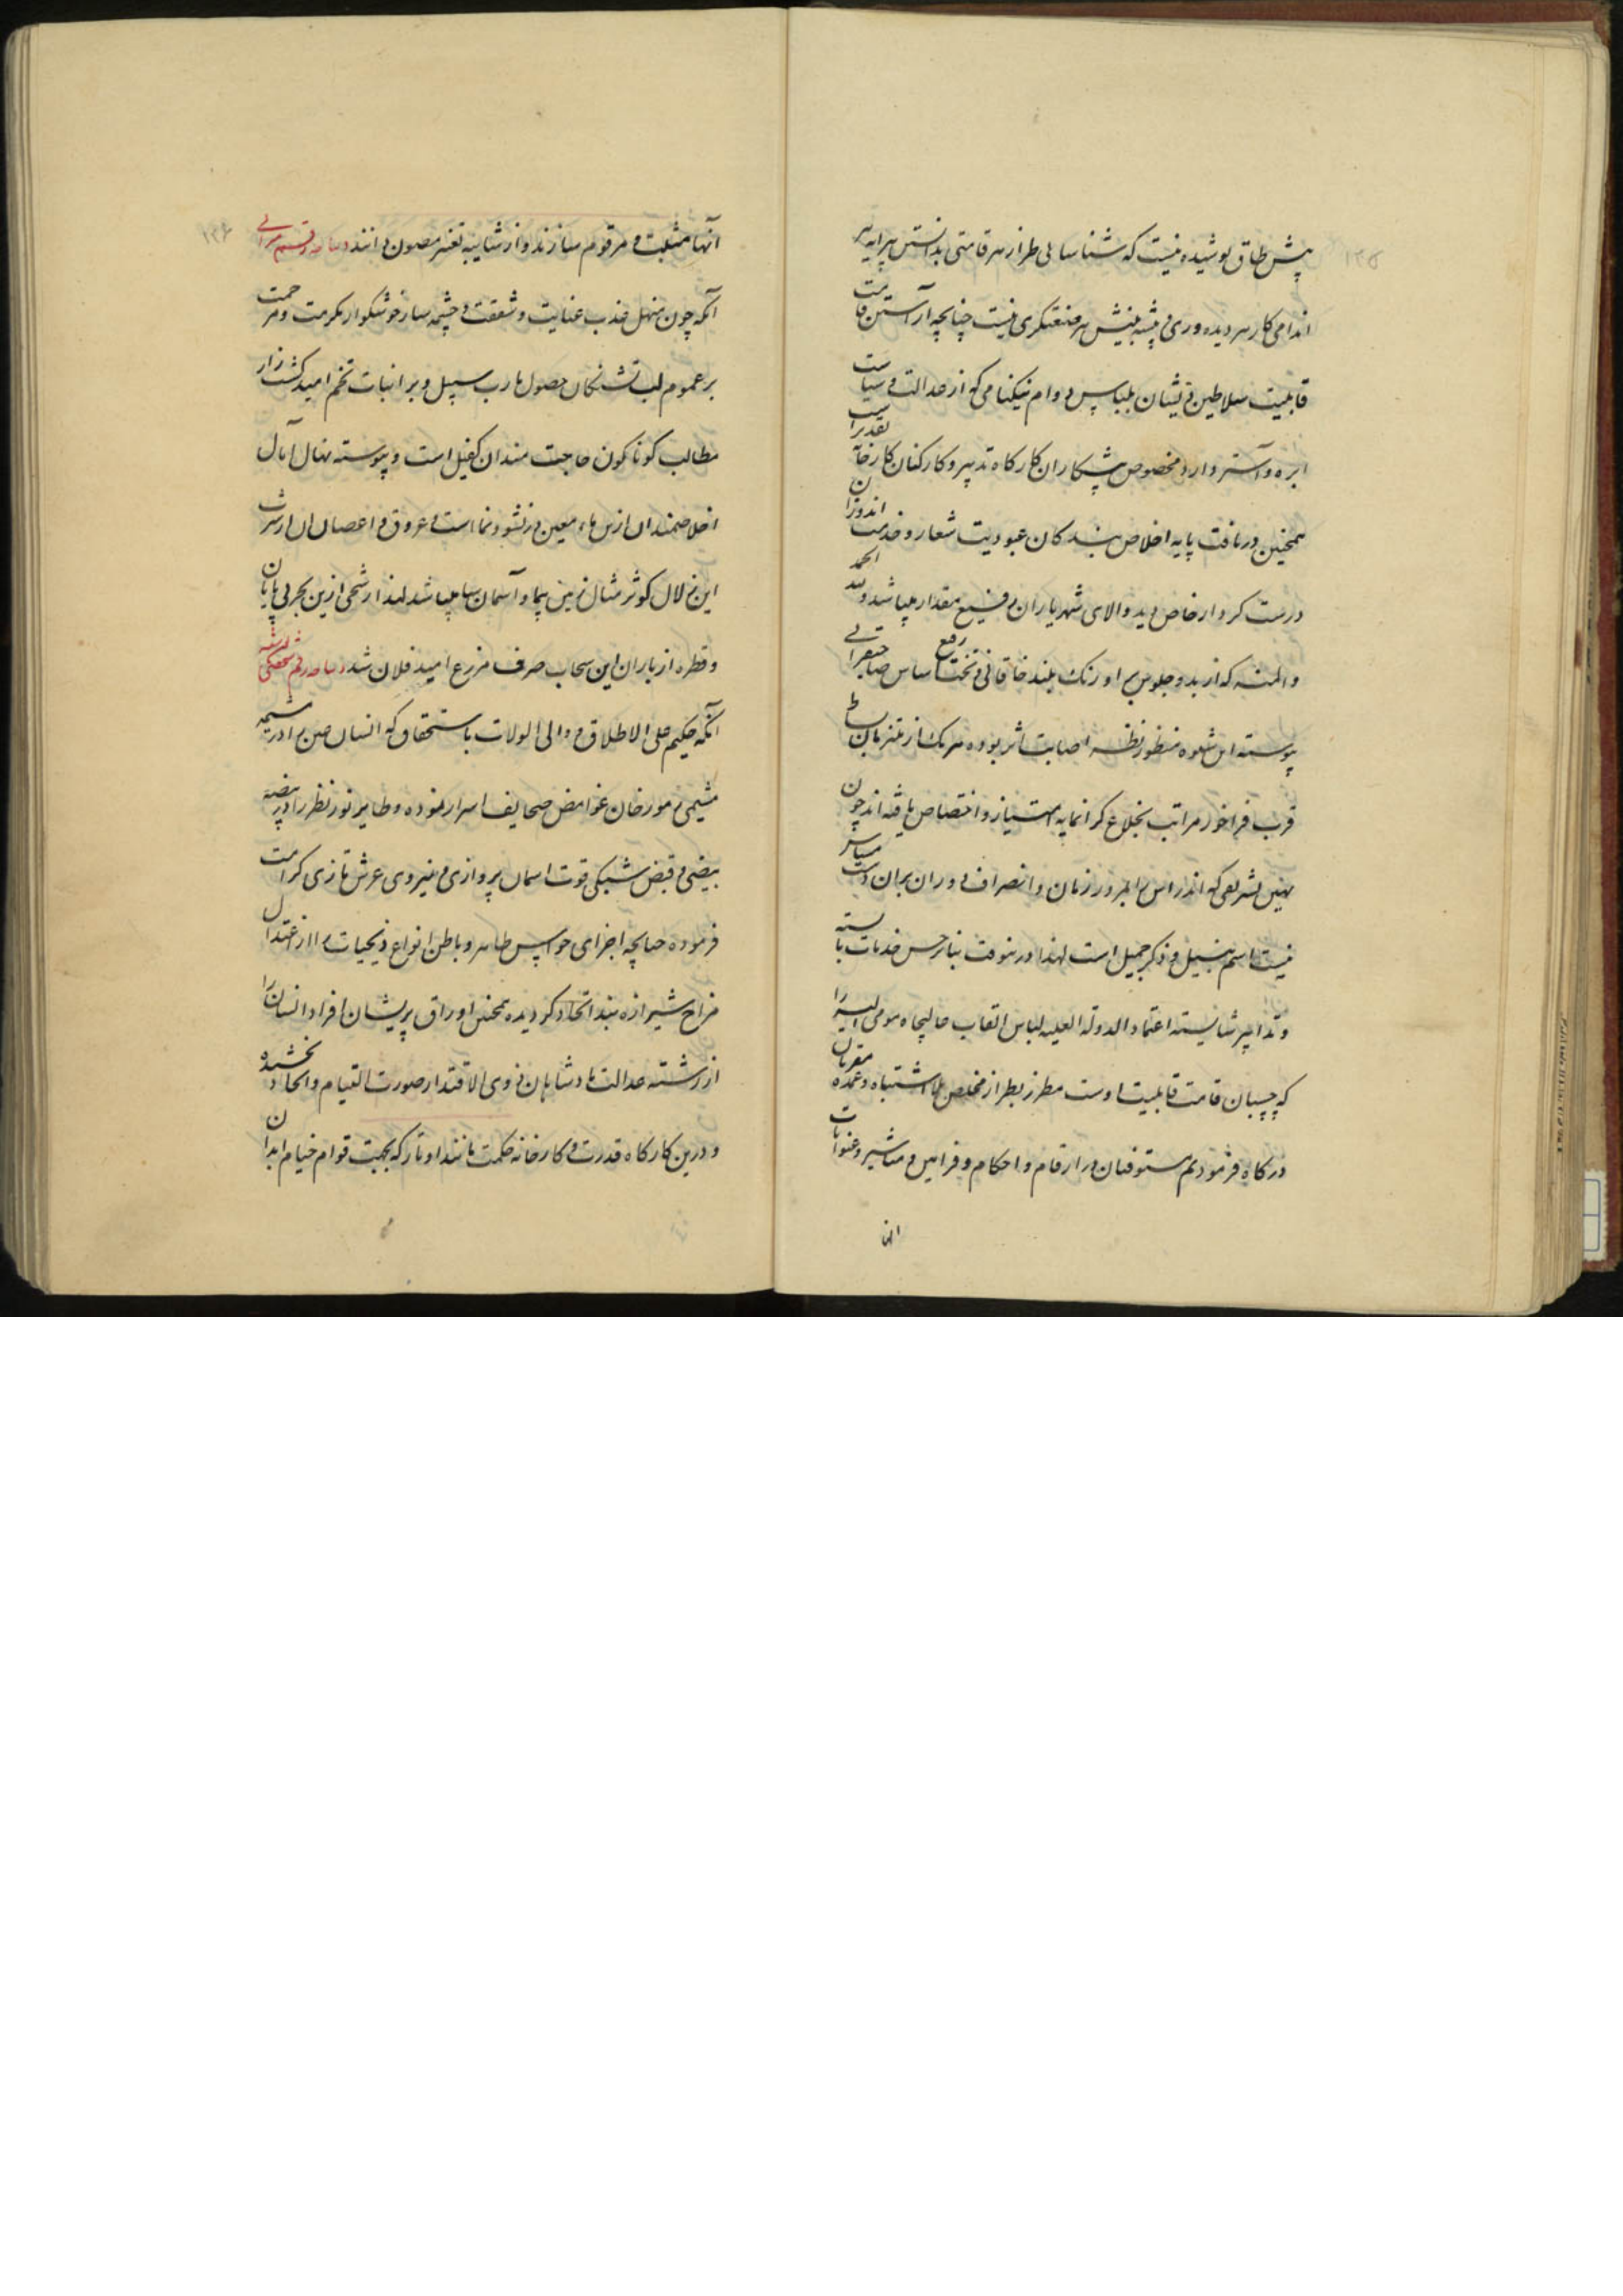 پیش طاق پوشیده نیست که شناسایی طراز هر قامتی بدانستن پیرایه هر
اندامی کار هر دیده وری و پیشه بینش هر صنعتگری نیست چنانچه آراستن قامت
قابلیت سلاطین ذیشان بلباس دوام نیکنامی که از عدالت و سیاست
ابره و آستر دارد مخصوص پیشکاران کارگاه تدبیر و کارکنان کارخانه تقدیر است
همچنین دریافت پایه اخلاص بندگان عبودیت شعار و خدمت اندوزان
درست کردار خاص دید والای شهریاران رفیع مقدار میباشد ولله الحمد
والمنه که از بدو جلوس بر اورنگ بلند خاقانی و تخت رفیع اساس صاحبقرانی
پیوسته این شیوه منظور نظر اصابت اثر بوده هر یک از ملتزمان بساط
قرب فراخور مراتب بخلاع گرانمایه امتیاز و اختصاص یافته اند چون
بهین تشریفی که اندراس را بمرور زمان و انصراف دوران بران دست
نیست اسم نبیل و ذکر جمیل است لهذا درینوقت بنابر حسن خدمات بایسته
و تدابیر شایسته اعتماد الدوله العلیه لباس القاب عالیجاه مومی الیه را
که چسبان قامت قابلیت اوست مطرز بطراز مخلص بلا اشتباه و عمده مقربان
درگاه فرمودیم مستوفیان در ارقام و احکام و فرامین و مناشیر و عنوانات
آنها
۱۳۵
آنها مثبت و مرقوم سازند و از شایبه تغییر مصون دانند
آنکه چون منهل عذب عنایت و شفقت و چشمه سار خوشگوار مکرمت و مرحمت
بر عموم لب تشنگان حصول مارب سبیل و بر انبات تخم امید کشت زار
مطالب گوناگون حاجت مندان کفیل است و پیوسته نهال آمال
اخلاصمندان ازین ماء معین در نشو و نما است و عروق و اغصان آن از سرشت
این زلال کوثر مثال زمین پیما و آسمان سا میباشد لهذا رشحی ازین بحر بی پایان
و قطره از باران این سحاب صرف مزرع امید فلان شد
آنکه حکیم علی الاطلاق و والی الولات باستحقاق که انسان عین را در مشیمه
مشیمی مورخان غوامض صحایف اسرار نموده و طایر نور نظر را در بیضه
بیضی و قفص شبکی قوت اسمان پروازی و نیروی عرش تازی کرامت
فرموده چنانچه اجزای حواس ظاهر و باطن انواع ذیحیات را از اعتدال
مزاج شیرازه بند اتحاد گردیده همچنین اوراق پریشان افراد انسان را
از رشته عدالت پادشاهان ذوی الاقتدار صورت التیام و اتحاد بخشیده
و درین کارگاه قدرت و کارخانه حکمت مانند اوتار که بجهت قوام خیام ابدان